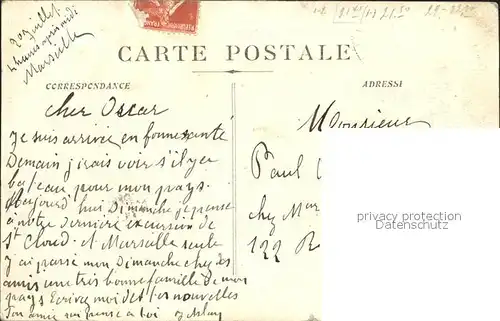 20 juillet
4 heures après midi
Marseille
CARTE POSTALE
CORRESPONDANCE
ADRESSE
cher Oscar
Je suis arrivée en bonne santé
Demain j irais voir s'il y a
bateau pour mon pays.
Aujourd hui Dimanche je pense
a notre dernière excursion de
St Cloud. et Marseille seule
J'ai passé mon Dimanche chez des
amis une tres bonne famille de mon
pays Ecrivez moi des tes nouvelles
Ton amie qui pense a toi
Monsieur
Paul
chez Mar
122 R
privacy protection
watermark